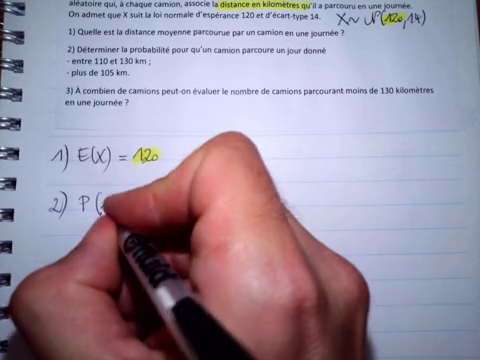 aléatoire qui, à chaque camion, associe la distance en kilomètres qu'il a parcouru en une journée.
On admet que X suit la loi normale d'espérance 120 et d'écart-type 14. X ~ N(120,14)
1) Quelle est la distance moyenne parcourue par un camion en une journée ?
2) Déterminer la probabilité pour qu'un camion parcoure un jour donné
- entre 110 et 130 km ;
- plus de 105 km.
3) À combien de camions peut-on évaluer le nombre de camions parcourant moins de 130 kilomètres
en une journée ?
1) E(X) = 120
2) P(